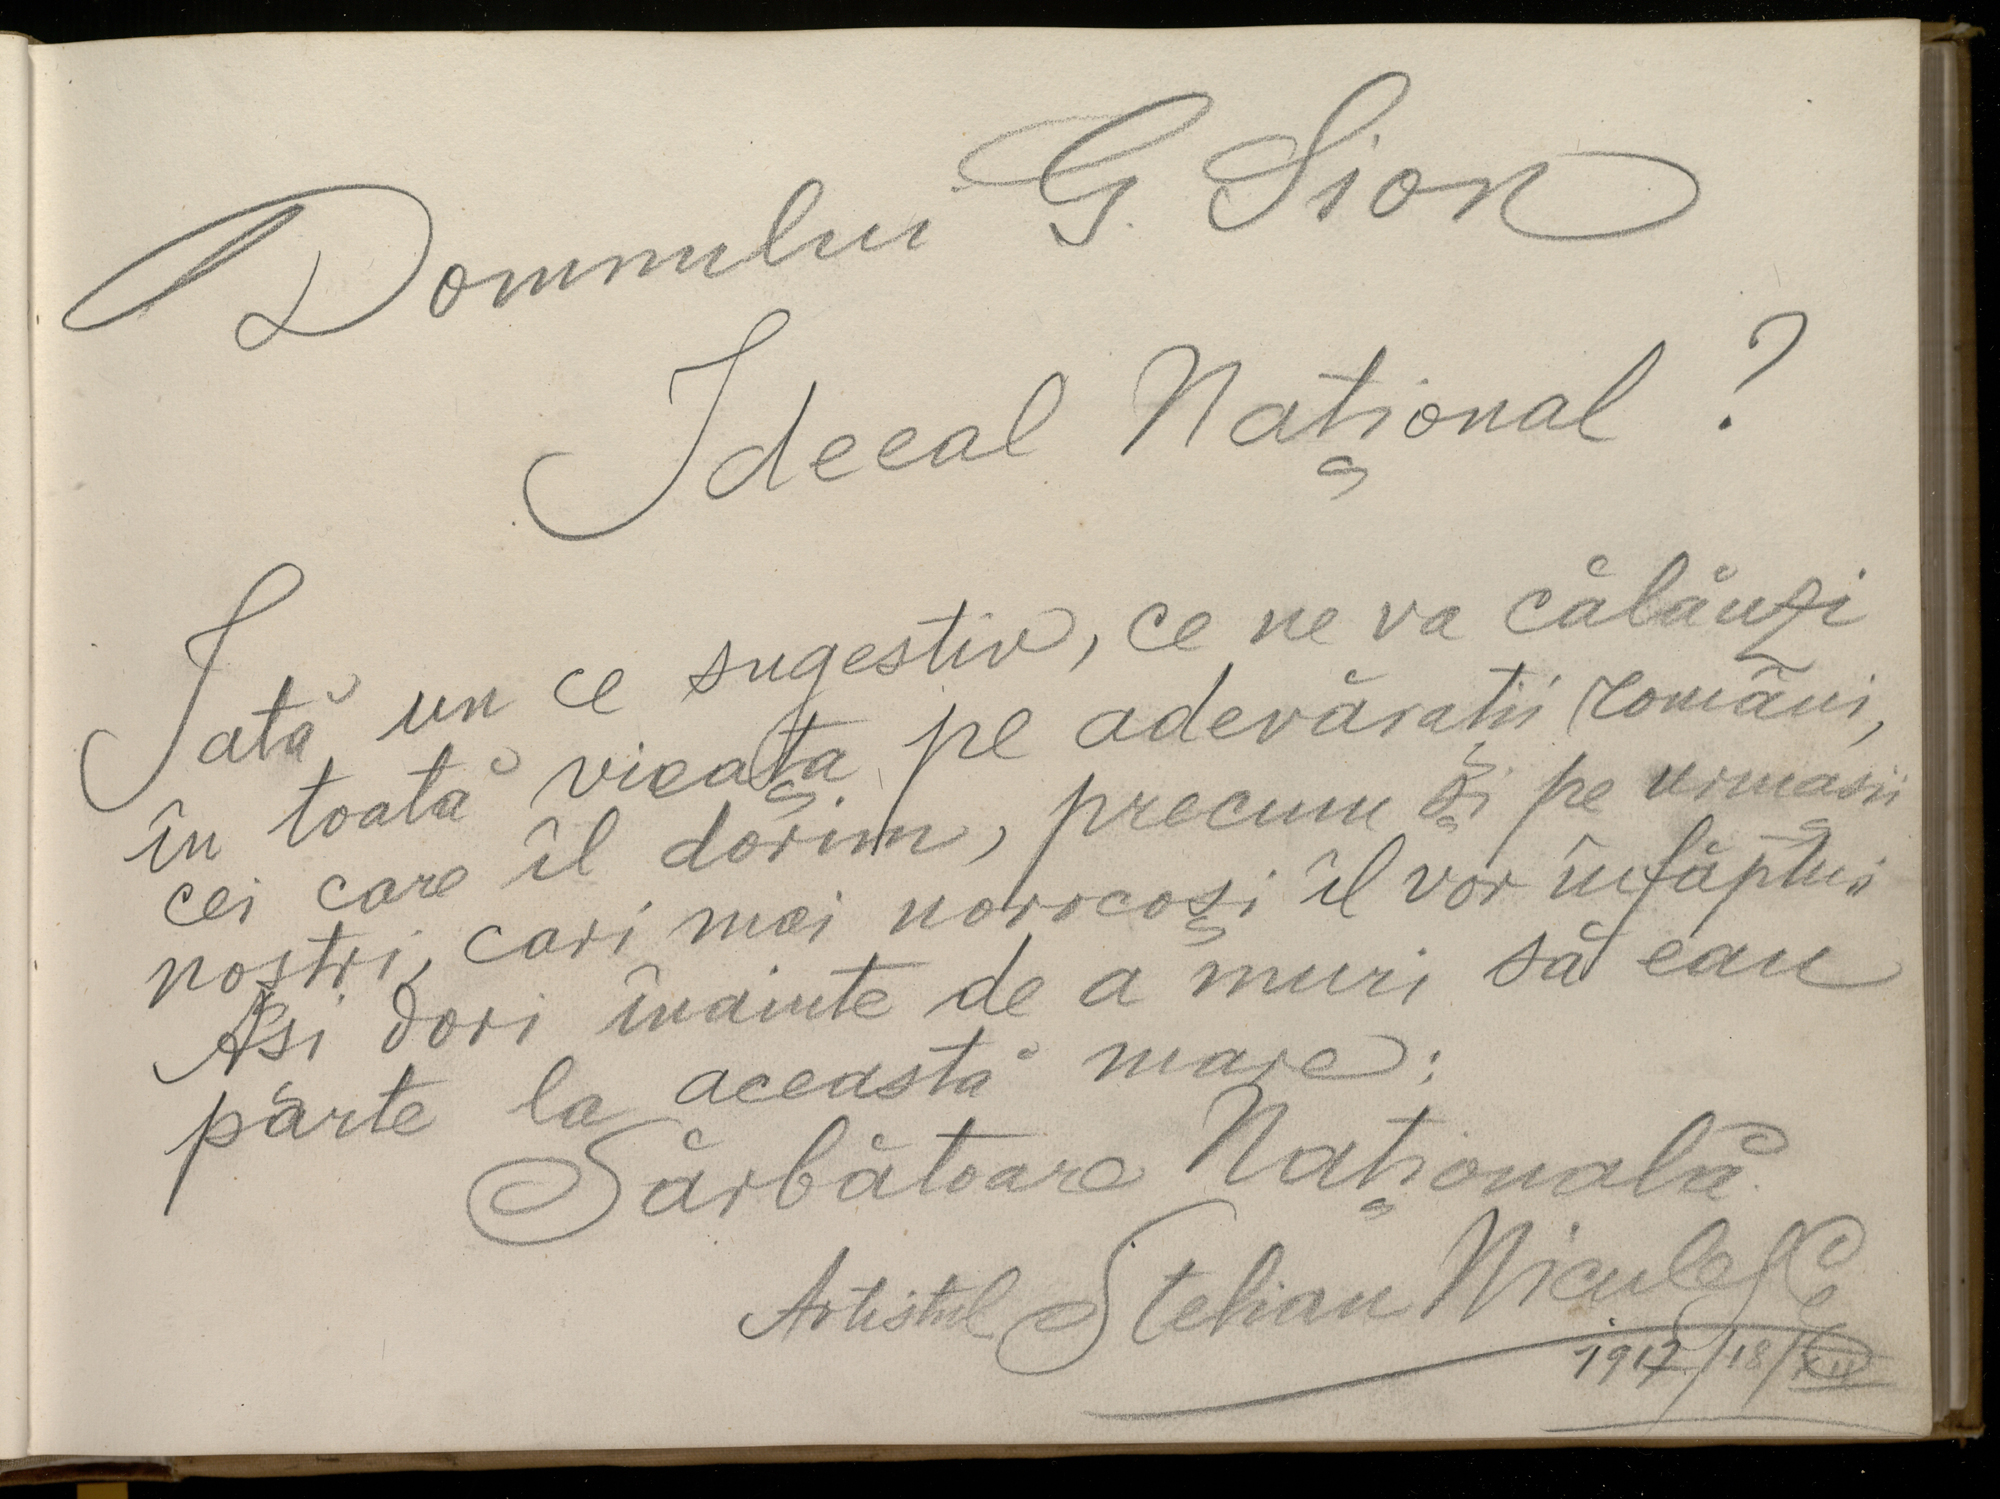 Domnului G. Sion
Ideeal Național?
Iată un ce sugestiv, ce ne va călăuzi
în toată vieața pe adevărații români,
cei care îl dorim, precum și pe urmașii
noștri, cari mai norocoși îl vor înfăptui
Ași dori înainte de a muri să eau
parte la această mare:
Sărbătoare Națională
Artistul Stelian Niculescu
1917/18/XII